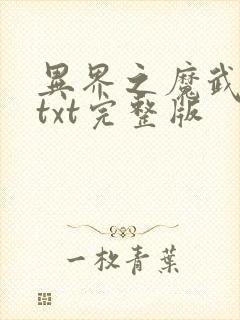 異界之魔武
txt完整版
一枚青葉